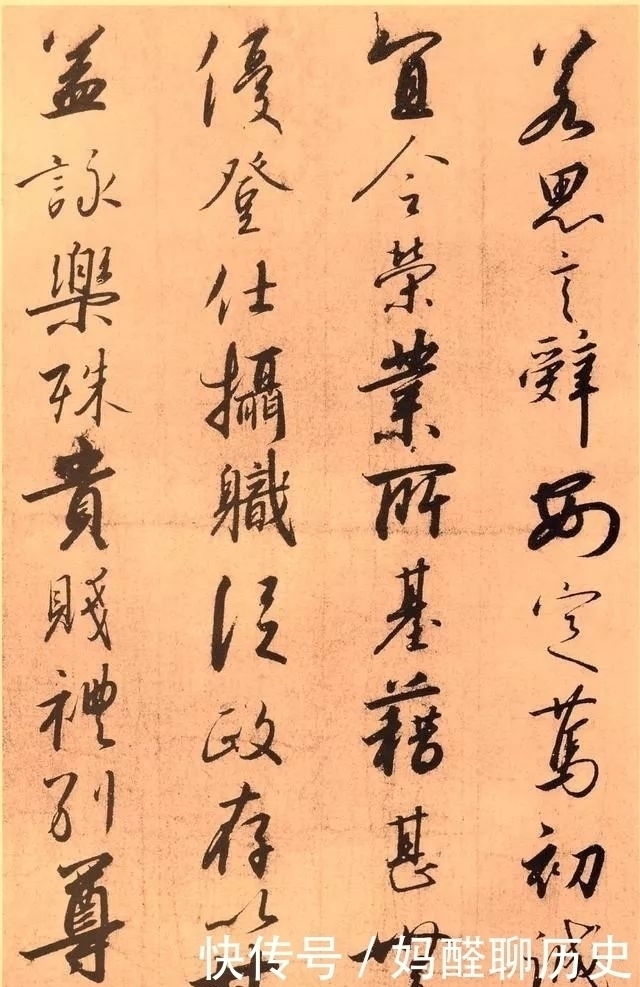 若思言辭安定篤初誠
宜令榮業所基藉甚無
優登仕攝職從政存以
益詠樂殊貴賤禮別尊
快传号 / 妈醒聊历史